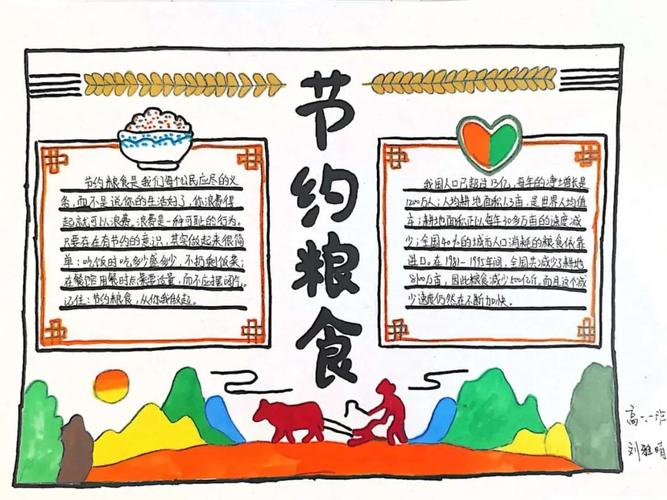 节约粮食
节约粮食是我们每个公民应尽的义
务，而不是说你的生活好了，你浪费得
起就可以浪费。浪费是一种可耻的行为。
只要存在有节约的意识，其实做起来很简
单：吃饭时吃多少盛多少，不扔剩饭菜；
在餐馆用餐时点菜要适量，而不应摆阔气。
记住：节约粮食，从你我做起。
我国人口已超过13亿，每年的净增长是
1200万人；人均耕地面积1.3亩，是世界人均值
耕地面积正以每年30多万亩的速度减
少；全国40%的城市人口消耗的粮食依靠
进口。在1981-1995年间，全国共减少了耕地
万亩，因此粮食减少500亿斤，而且这个减
少速度仍然在不断加快。
高一
刘雅晴